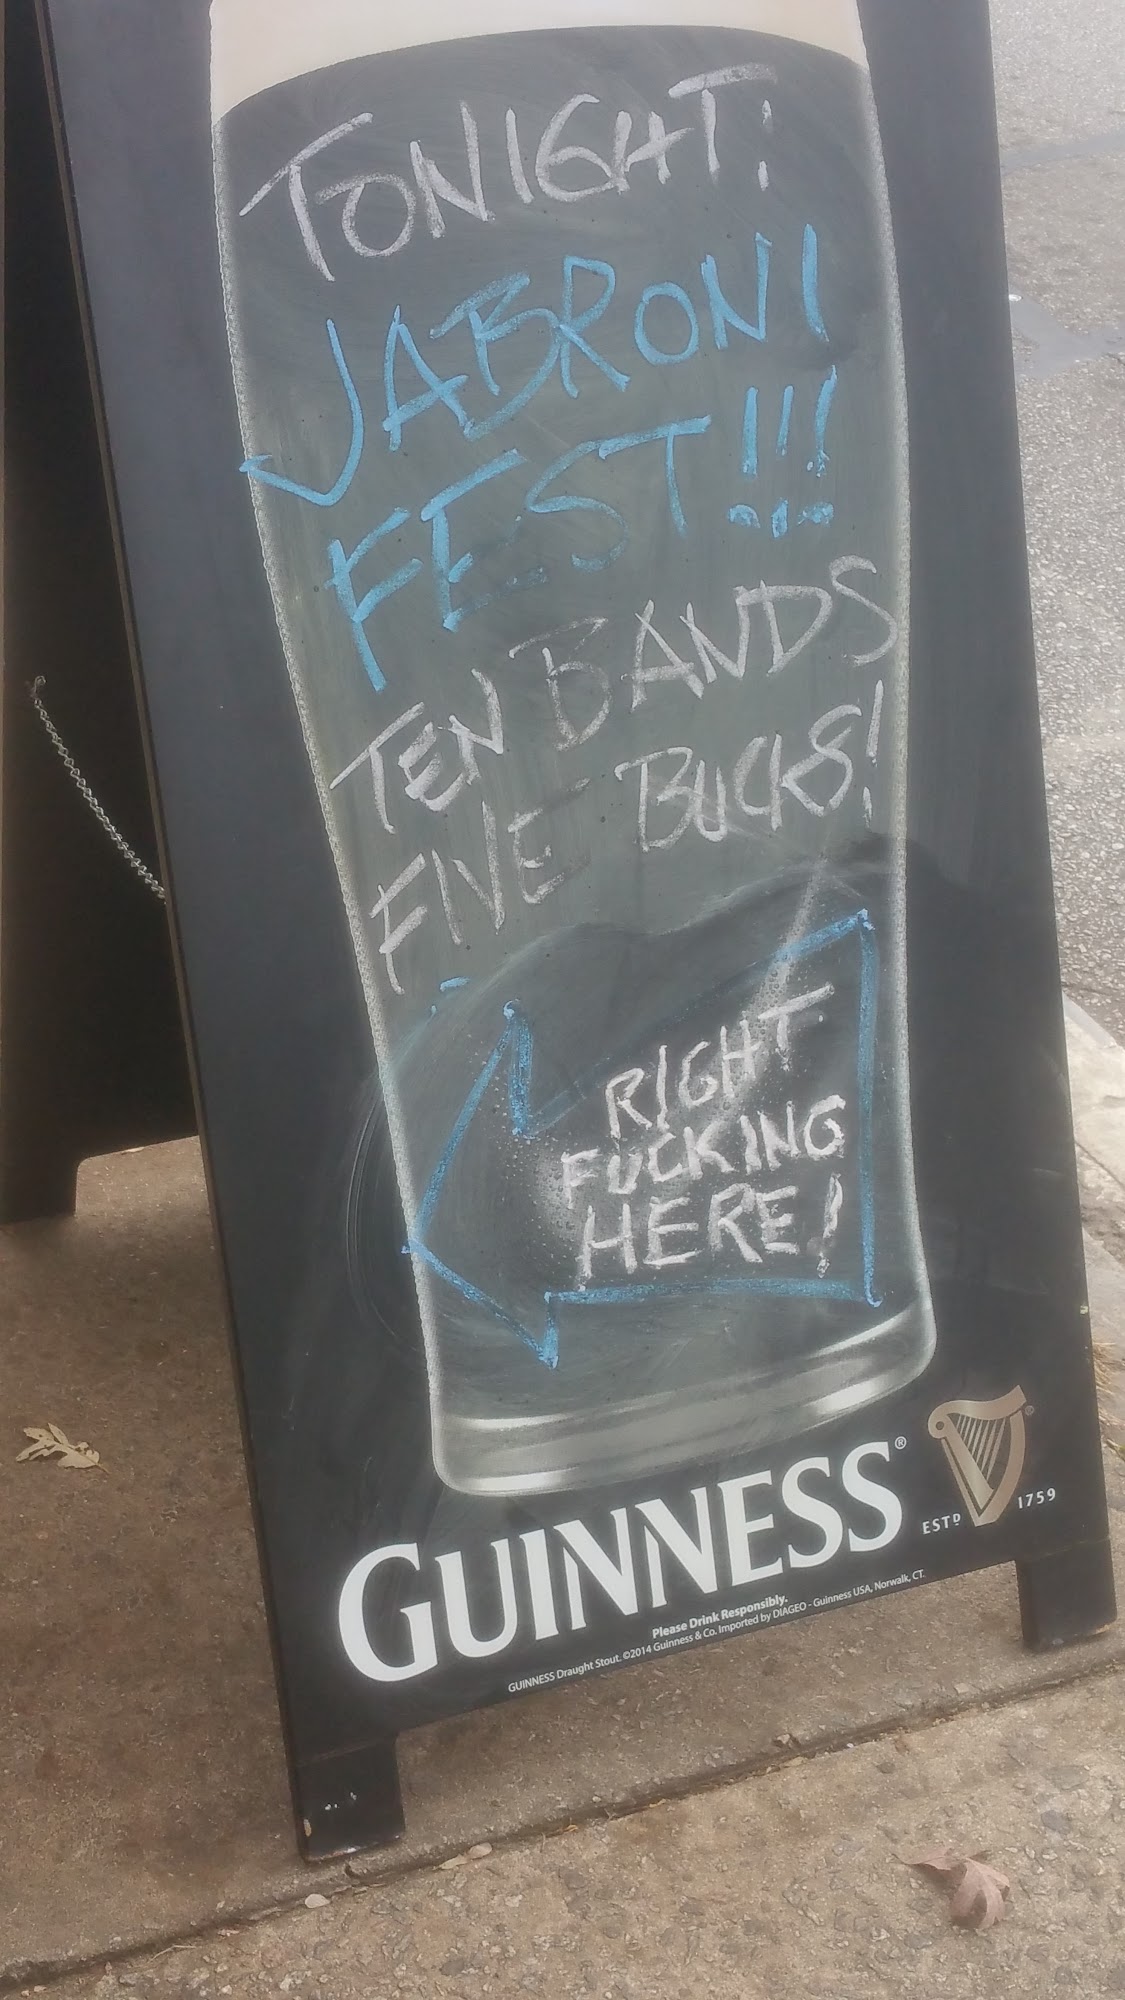 TONIGHT:
JABRONI
FEST!!!
TEN BANDS
FIVE BUCKS!
RIGHT
FUCKING
HERE!
GUINNESS®
ESTD 1759
Please Drink Responsibly.
GUINNESS Draught Stout. ©2014 Guinness & Co. Imported by DIAGEO - Guinness USA, Norwalk, CT.